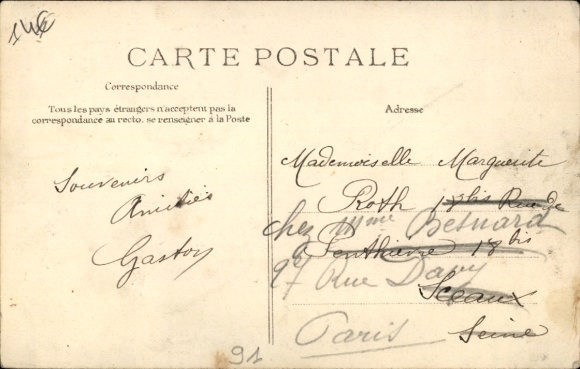 14€
CARTE POSTALE
Correspondance
Tous les pays étrangers n'acceptent pas la
correspondance au recto, se renseigner à la Poste
Adresse
Souvenirs
Amitiés
Gaston
Mademoiselle Marguerite
Roth 17bis Rue de
chez Mme Besnard
Penthièvre 18 bis
27 Rue Davy
Sceaux
Paris
Seine
91